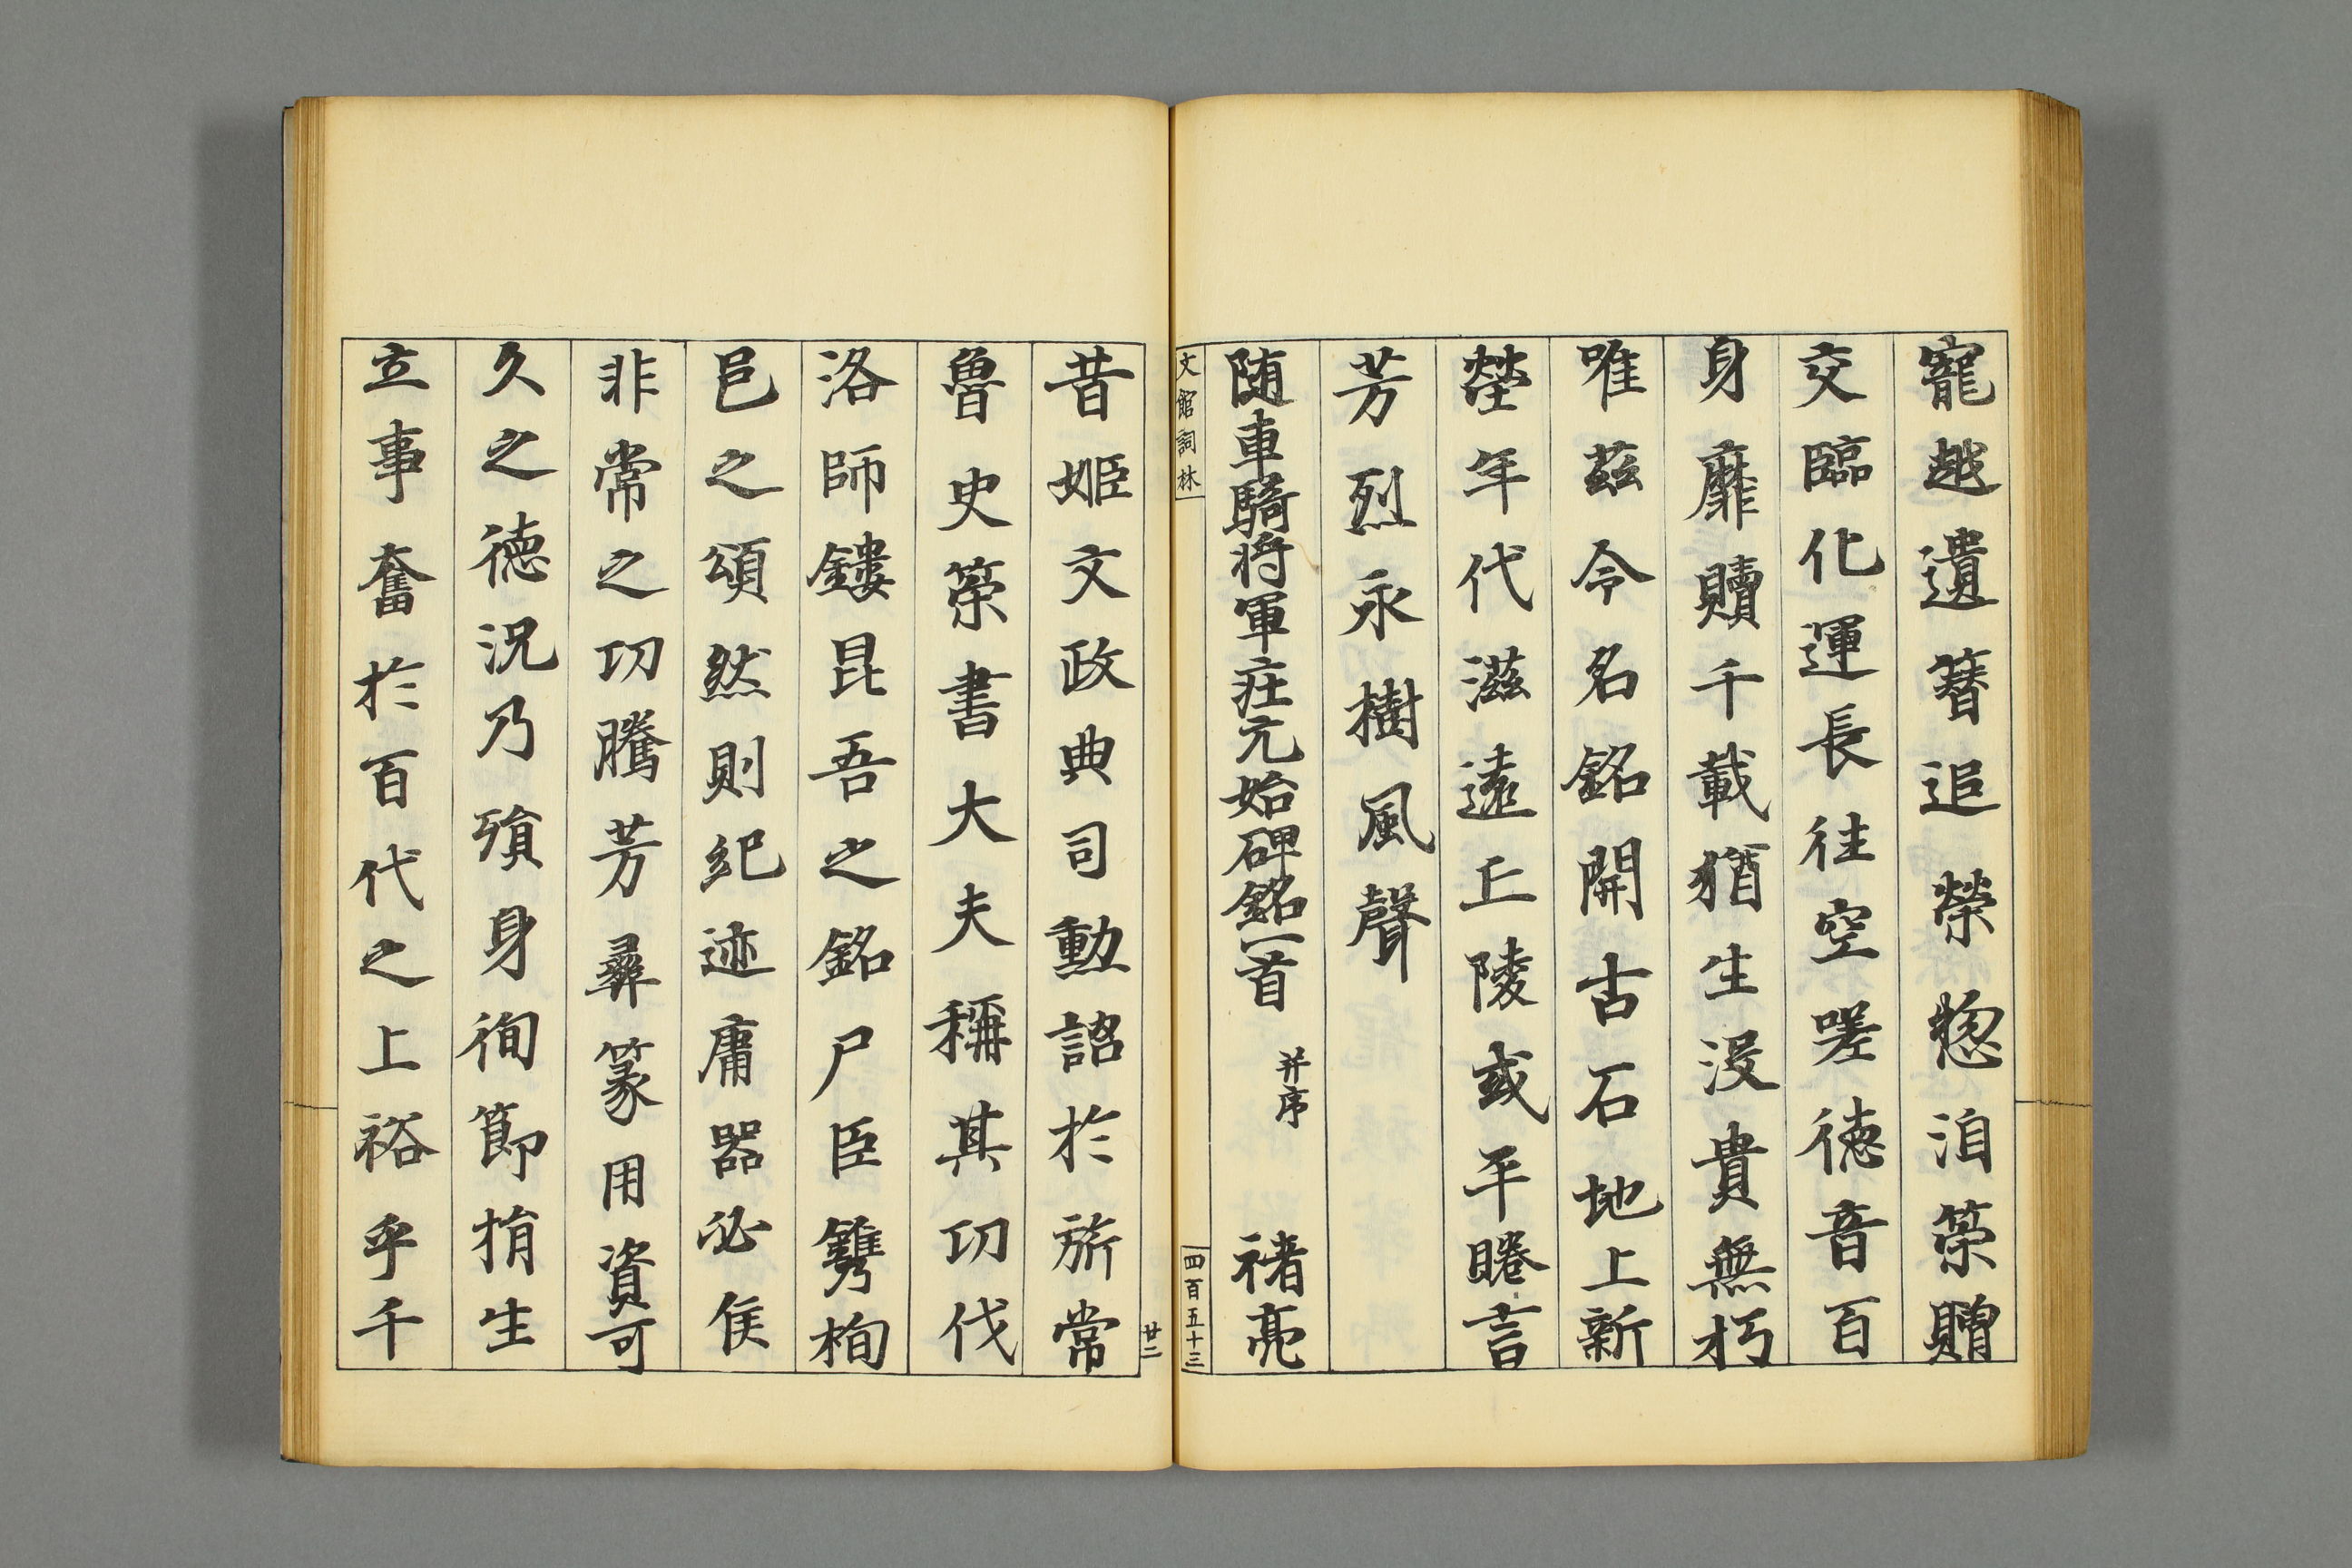 寵越遺簪追榮惣洎䇿贈
交臨化運長往空嗟德音百
身靡贖千載猶生没貴無朽
唯茲令名銘開古石地上新
塋年代滋遠丘陵或平睠言
芳烈永樹風聲
随車騎將軍庄元始碑銘一首 并序 褚亮
文館詞林
四百五十三
廿二
昔姬文政典司勳詔於旂常
魯史䇿書大夫稱其功伐
洛師鏤昆吾之銘尸臣鐫栒
邑之頌然則紀迹庸器必俟
非常之功騰芳彞篆用資可
久之德况乃殞身徇節捐生
立事奮於百代之上裕乎千